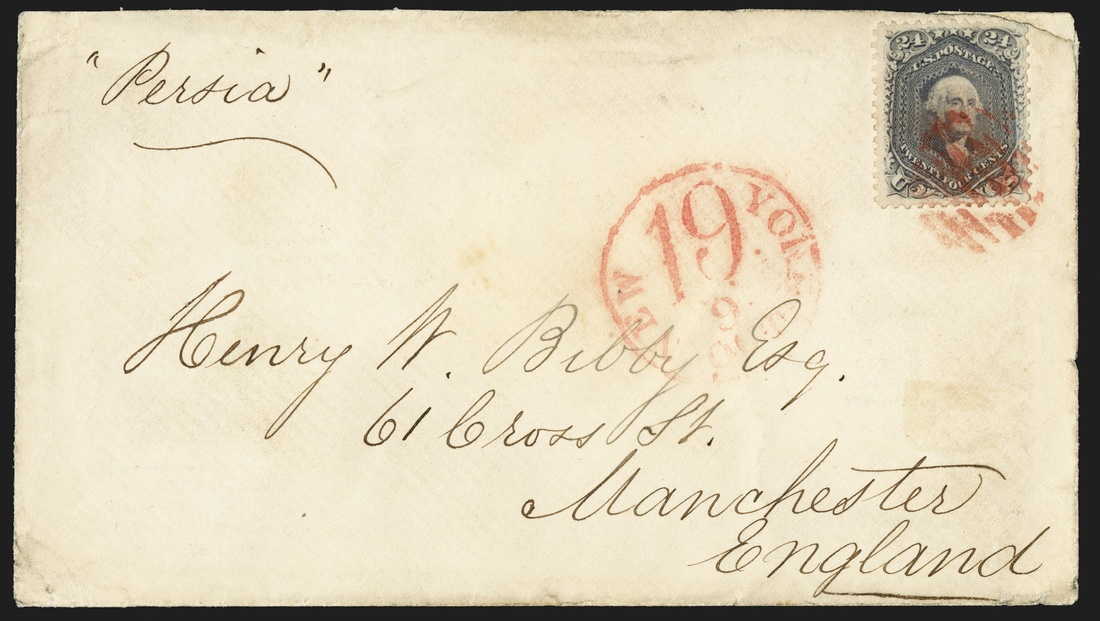 "Persia"
24 24
U.S. POSTAGE
TWENTY FOUR CENTS
U S
NEW YORK
19
Henry W. Bibby Esq.
61 Cross St.
Manchester
England